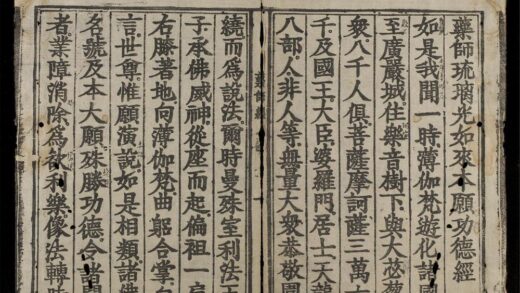 藥師琉璃光如來本願功德經
如是我聞一時薄伽梵遊化諸國
至廣嚴城住樂音樹下與大苾芻
衆八千人俱菩薩摩訶薩三萬
千及國王大臣婆羅門居士天龍
八部人非人等無量大衆恭敬圍
藥師經
繞而爲說法爾時曼殊室利法王
子承佛威神從座而起偏袒一肩
右膝著地向薄伽梵曲躬合掌
言世尊惟願演說如是相類諸佛
名號及本大願殊勝功德令諸聞
者業障消除爲欲利樂像法轉時